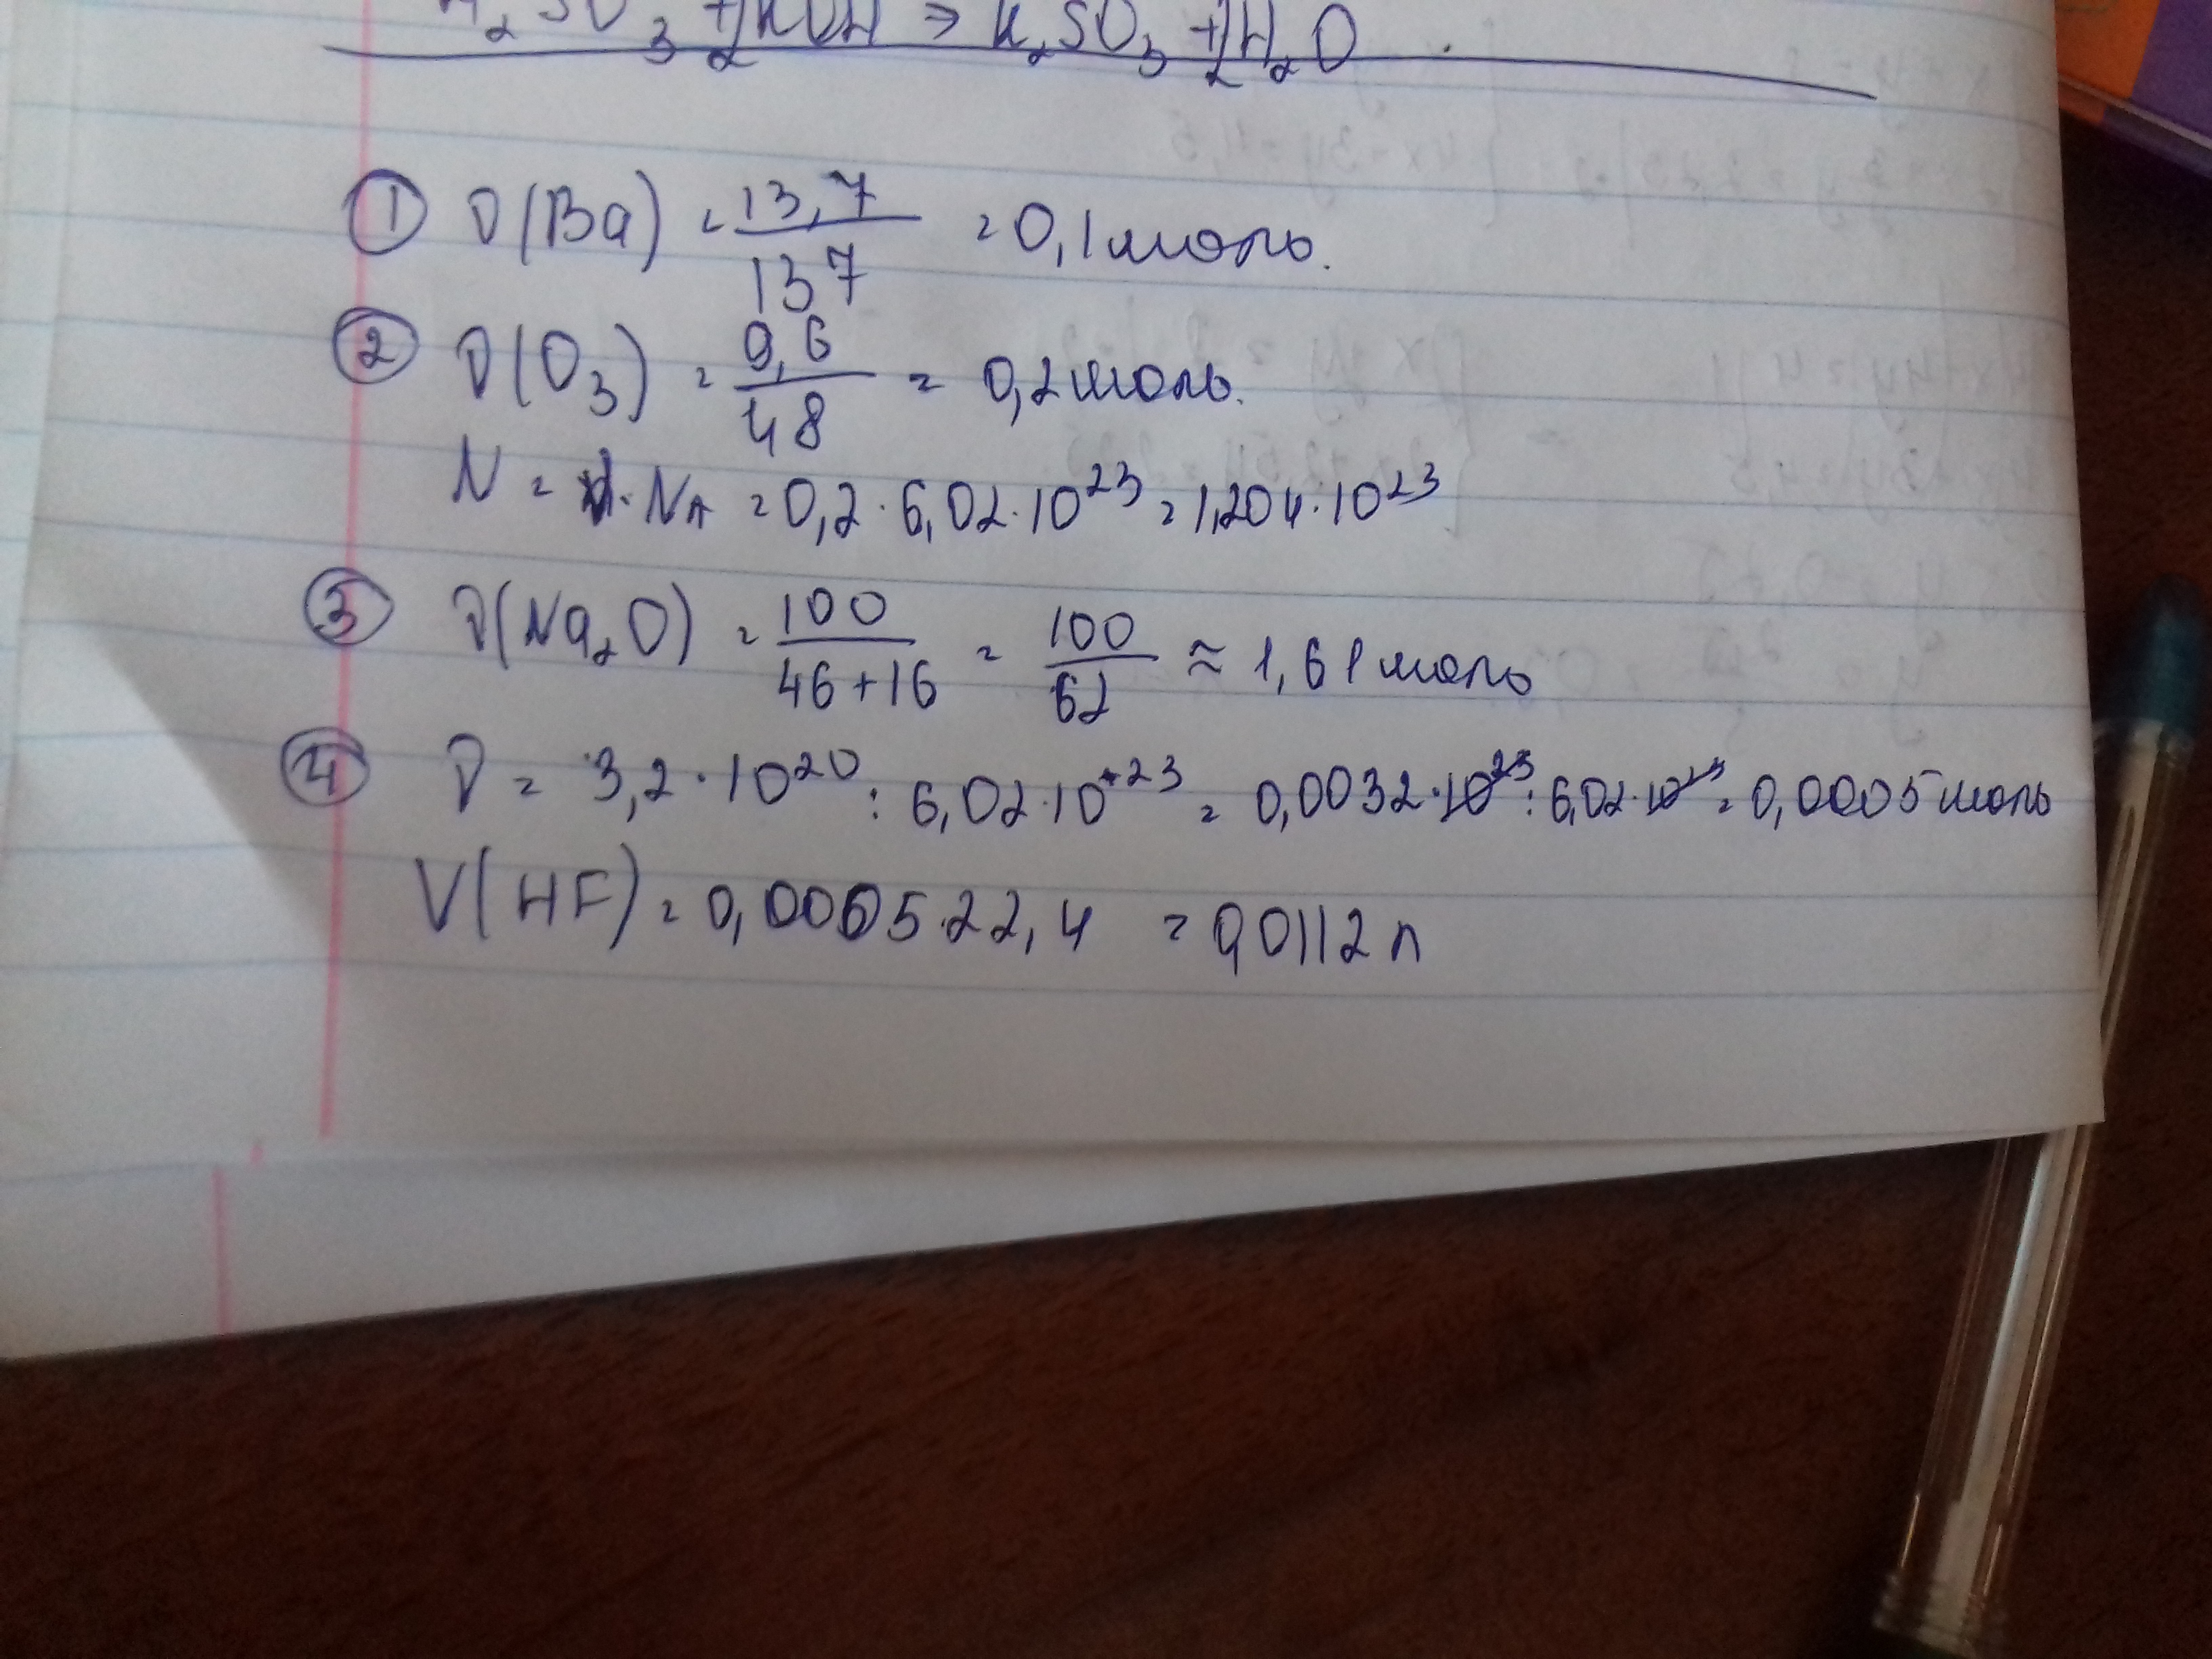 H₂SO₃ + 2KOH ⇒ K₂SO₃ + 2H₂O
① ν(Ba) = 13,7/137 = 0,1 моль.
② ν(O₃) = 9,6/48 = 0,2 моль.
N = ν · Nᴀ = 0,2 · 6,02 · 10²³ = 1,204 · 10²³
③ ν(Na₂O) = 100/46+16 = 100/62 ≈ 1,61 моль
④ ν = 3,2 · 10²⁰ : 6,02 · 10²³ = 0,0032 · 10²³ : 6,02 · 10²³ = 0,0005 моль
V(HF) = 0,0005 · 22,4 = 0,0112 л